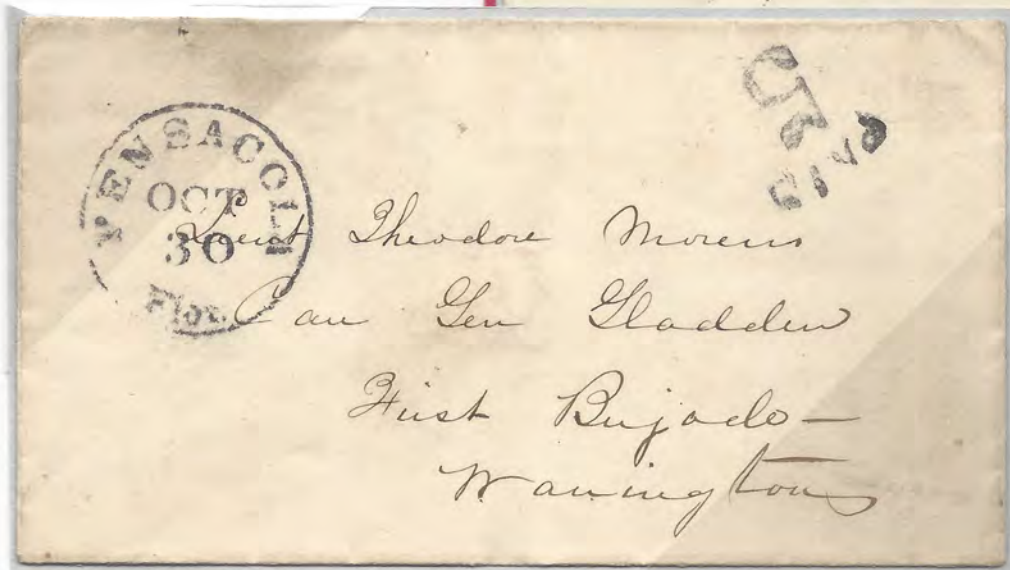 PENSACOLA
OCT
30
Flor.
Lieut Theodore Moreno
Care Gen Gladden
First Brigade —
Warrington
PAID